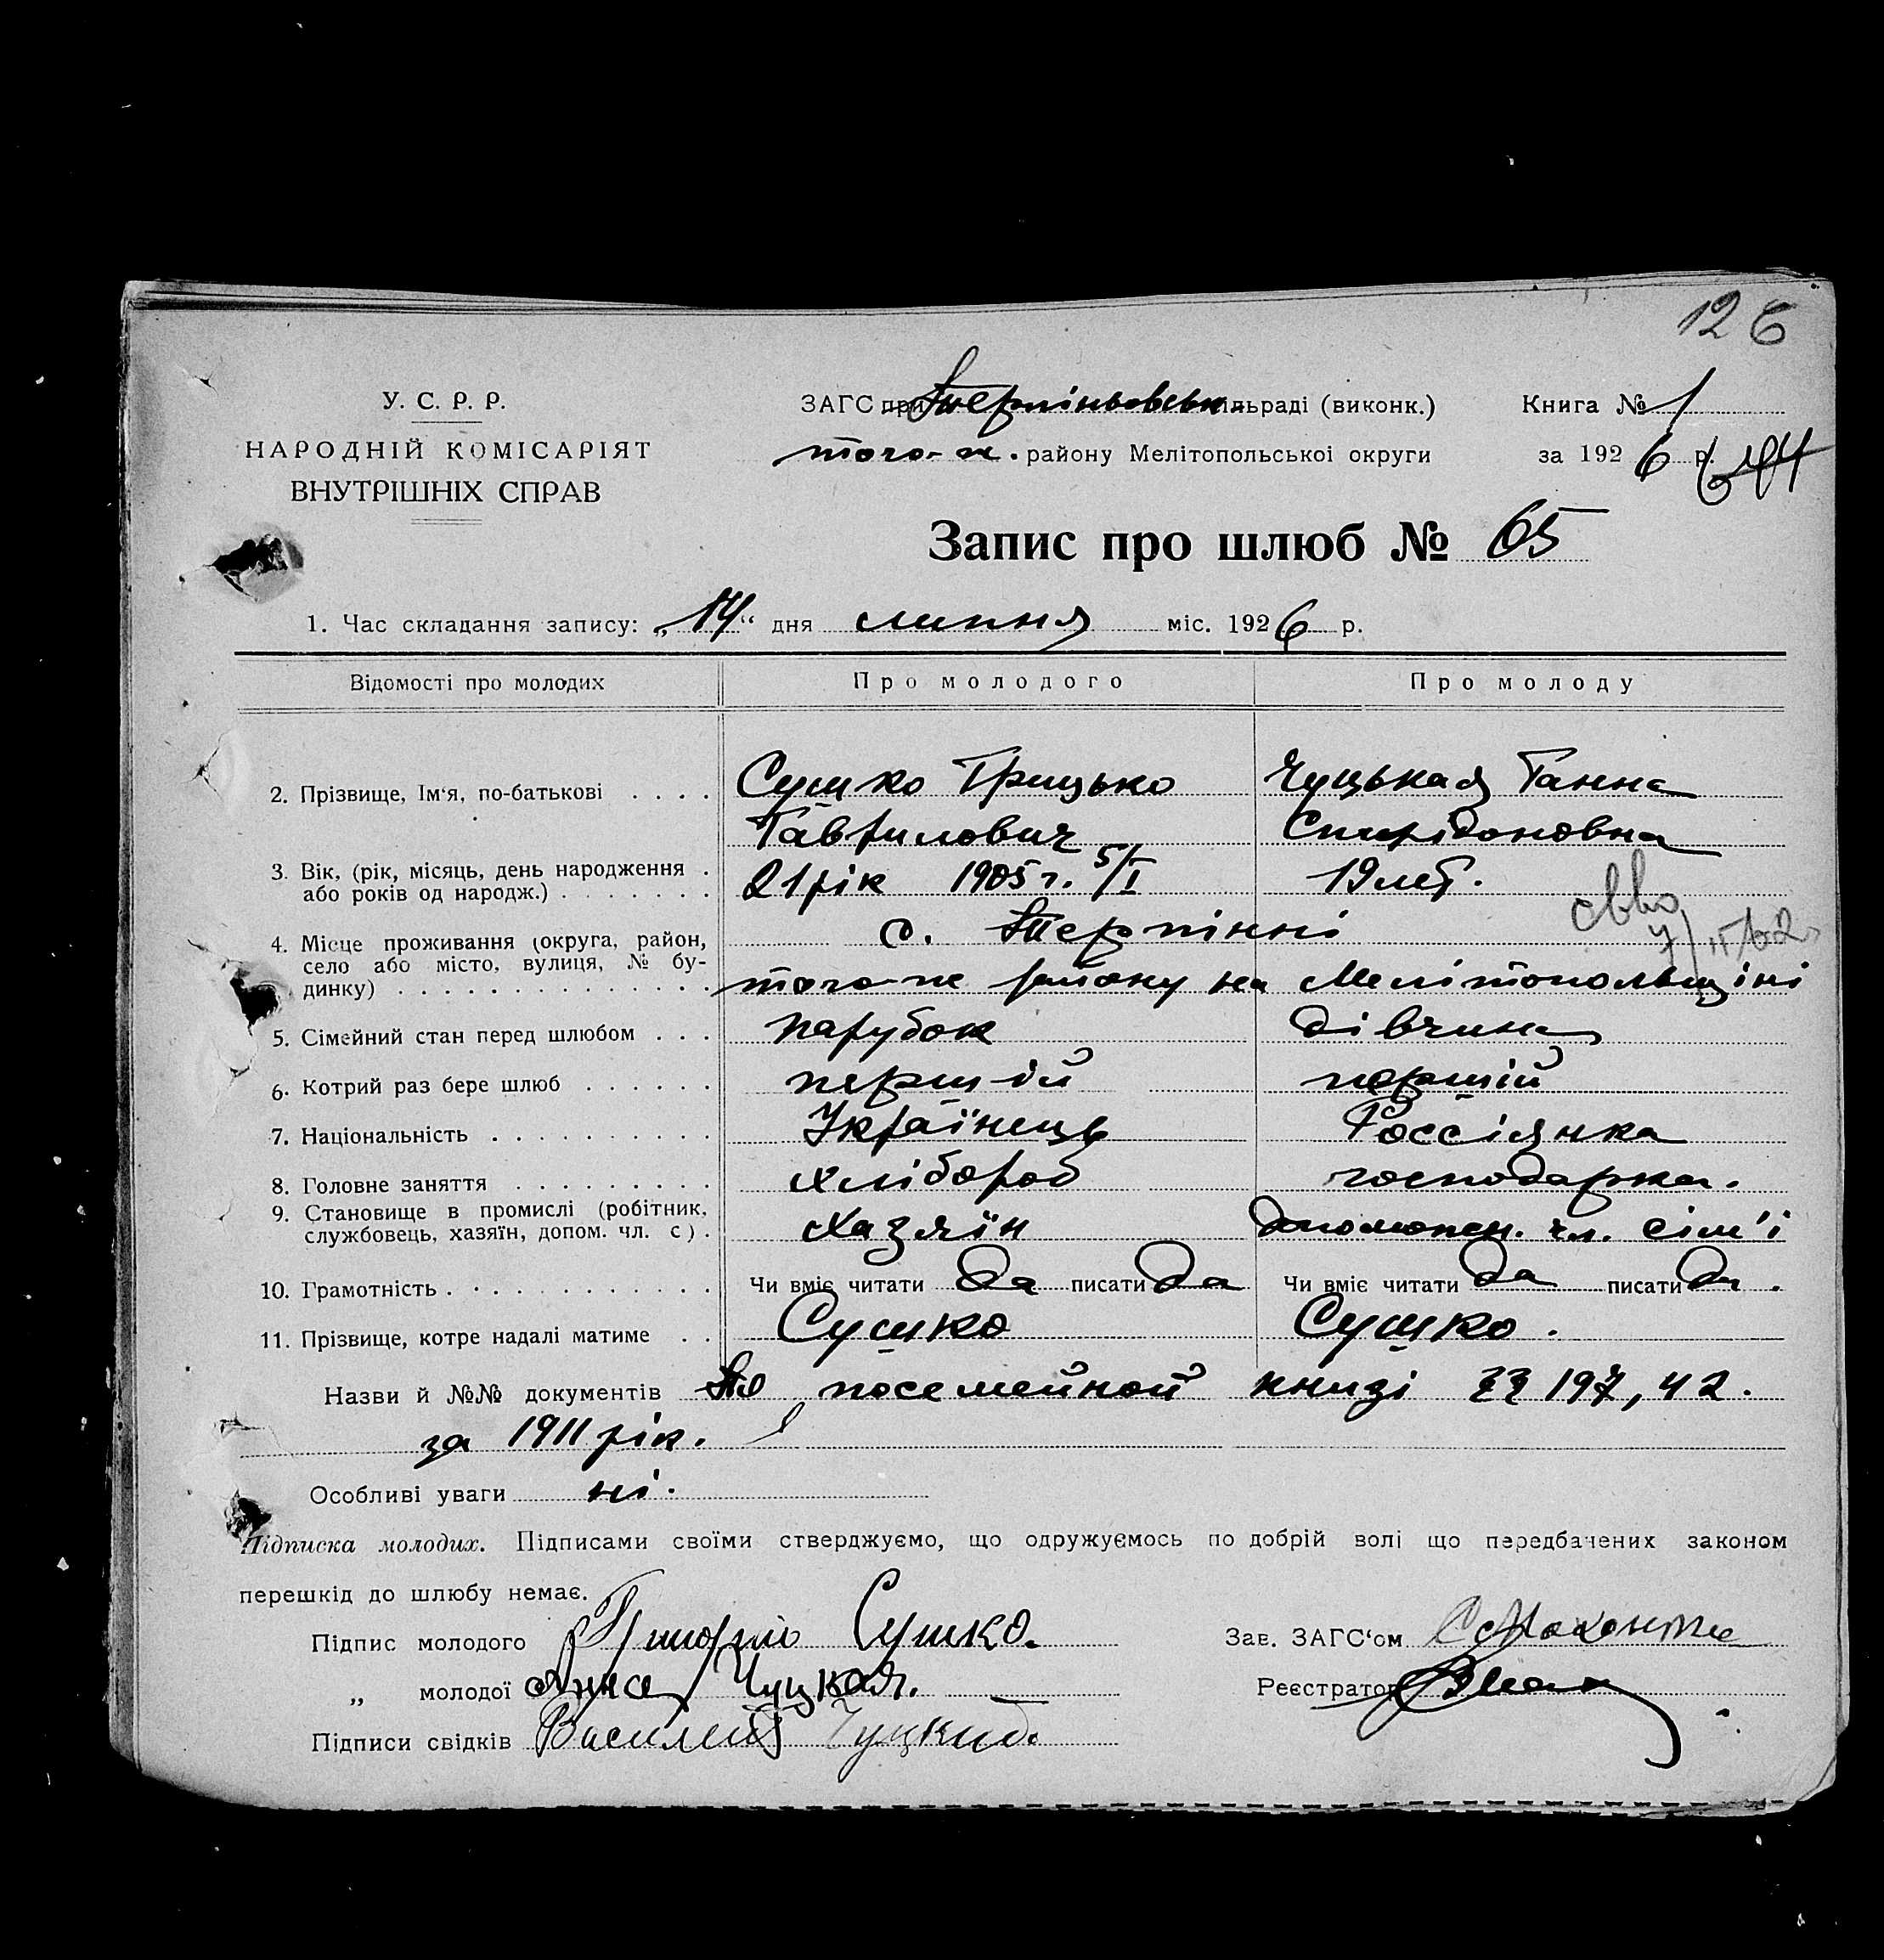 126
У. С. Р. Р.
НАРОДНІЙ КОМІСАРІЯТ
ВНУТРІШНІХ СПРАВ
ЗАГС при Терпіньовськ. сільраді (виконк.)
того-ж. району Мелітопольської округи
Книга № 1
за 1926 р.
Запис про шлюб № 65
1. Час складання запису: „14“ дня липня міс. 1926 р.
Відомості про молодих
Про молодого
Про молоду
2. Прізвище, Ім'я, по-батькові . . . . Сушко Грицько Чуцькая Ганна
Гаврилович Спирідоновна
3. Вік, (рік, місяць, день народження . 21 рік 1905 г. 5/I 19 лет.
або років од народж.) . . . . . . .
4. Місце проживання (округа, район, с. Терпінні
село або місто, вулиця, № бу-
динку) . . . . . . . . . . . . . того-ж району на Мелітопольщіні
5. Сімейний стан перед шлюбом . . . парубок дівчина
6. Котрий раз бере шлюб . . . . . . першій першій
7. Національність . . . . . . . . . . Українець Россіянка
8. Головне заняття . . . . . . . . . хлібороб господарка.
9. Становище в промислі (робітник,
службовець, хазяїн, допом. чл. с). хазяїн допомжн. чл. сім'і
10. Грамотність . . . . . . . . . . . Чи вміє читати да писати да Чи вміє читати да писати да.
11. Прізвище, котре надалі матиме . . Сушко Сушко.
Назви й №№ документів По посемейной книзі 197, 42.
за 1911 рік.
Особливі уваги ні.
Підписка молодих. Підписами своїми стверджуємо, що одружуємось по добрій волі що передбачених законом
перешкід до шлюбу немає.
Підпис молодого Григорій Сушко.
„ молодої Анна Чуцкая.
Підписи свідків Василий Чуцкий.
Зав. ЗАГС'ом
Реєстратор